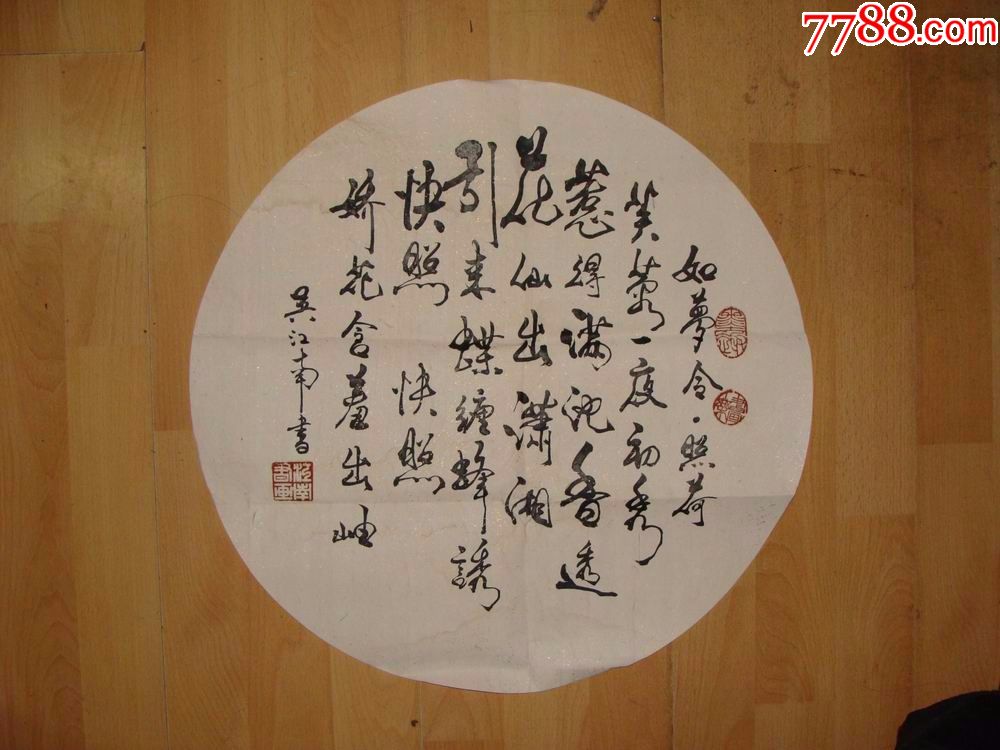 7788.com
如夢令·照荷
芙蕖一度初秀
惹得滿池香透
花仙出瀟湘
引來蝶纏蜂誘
快照 快照
娇花含羞出岫
吳江南書